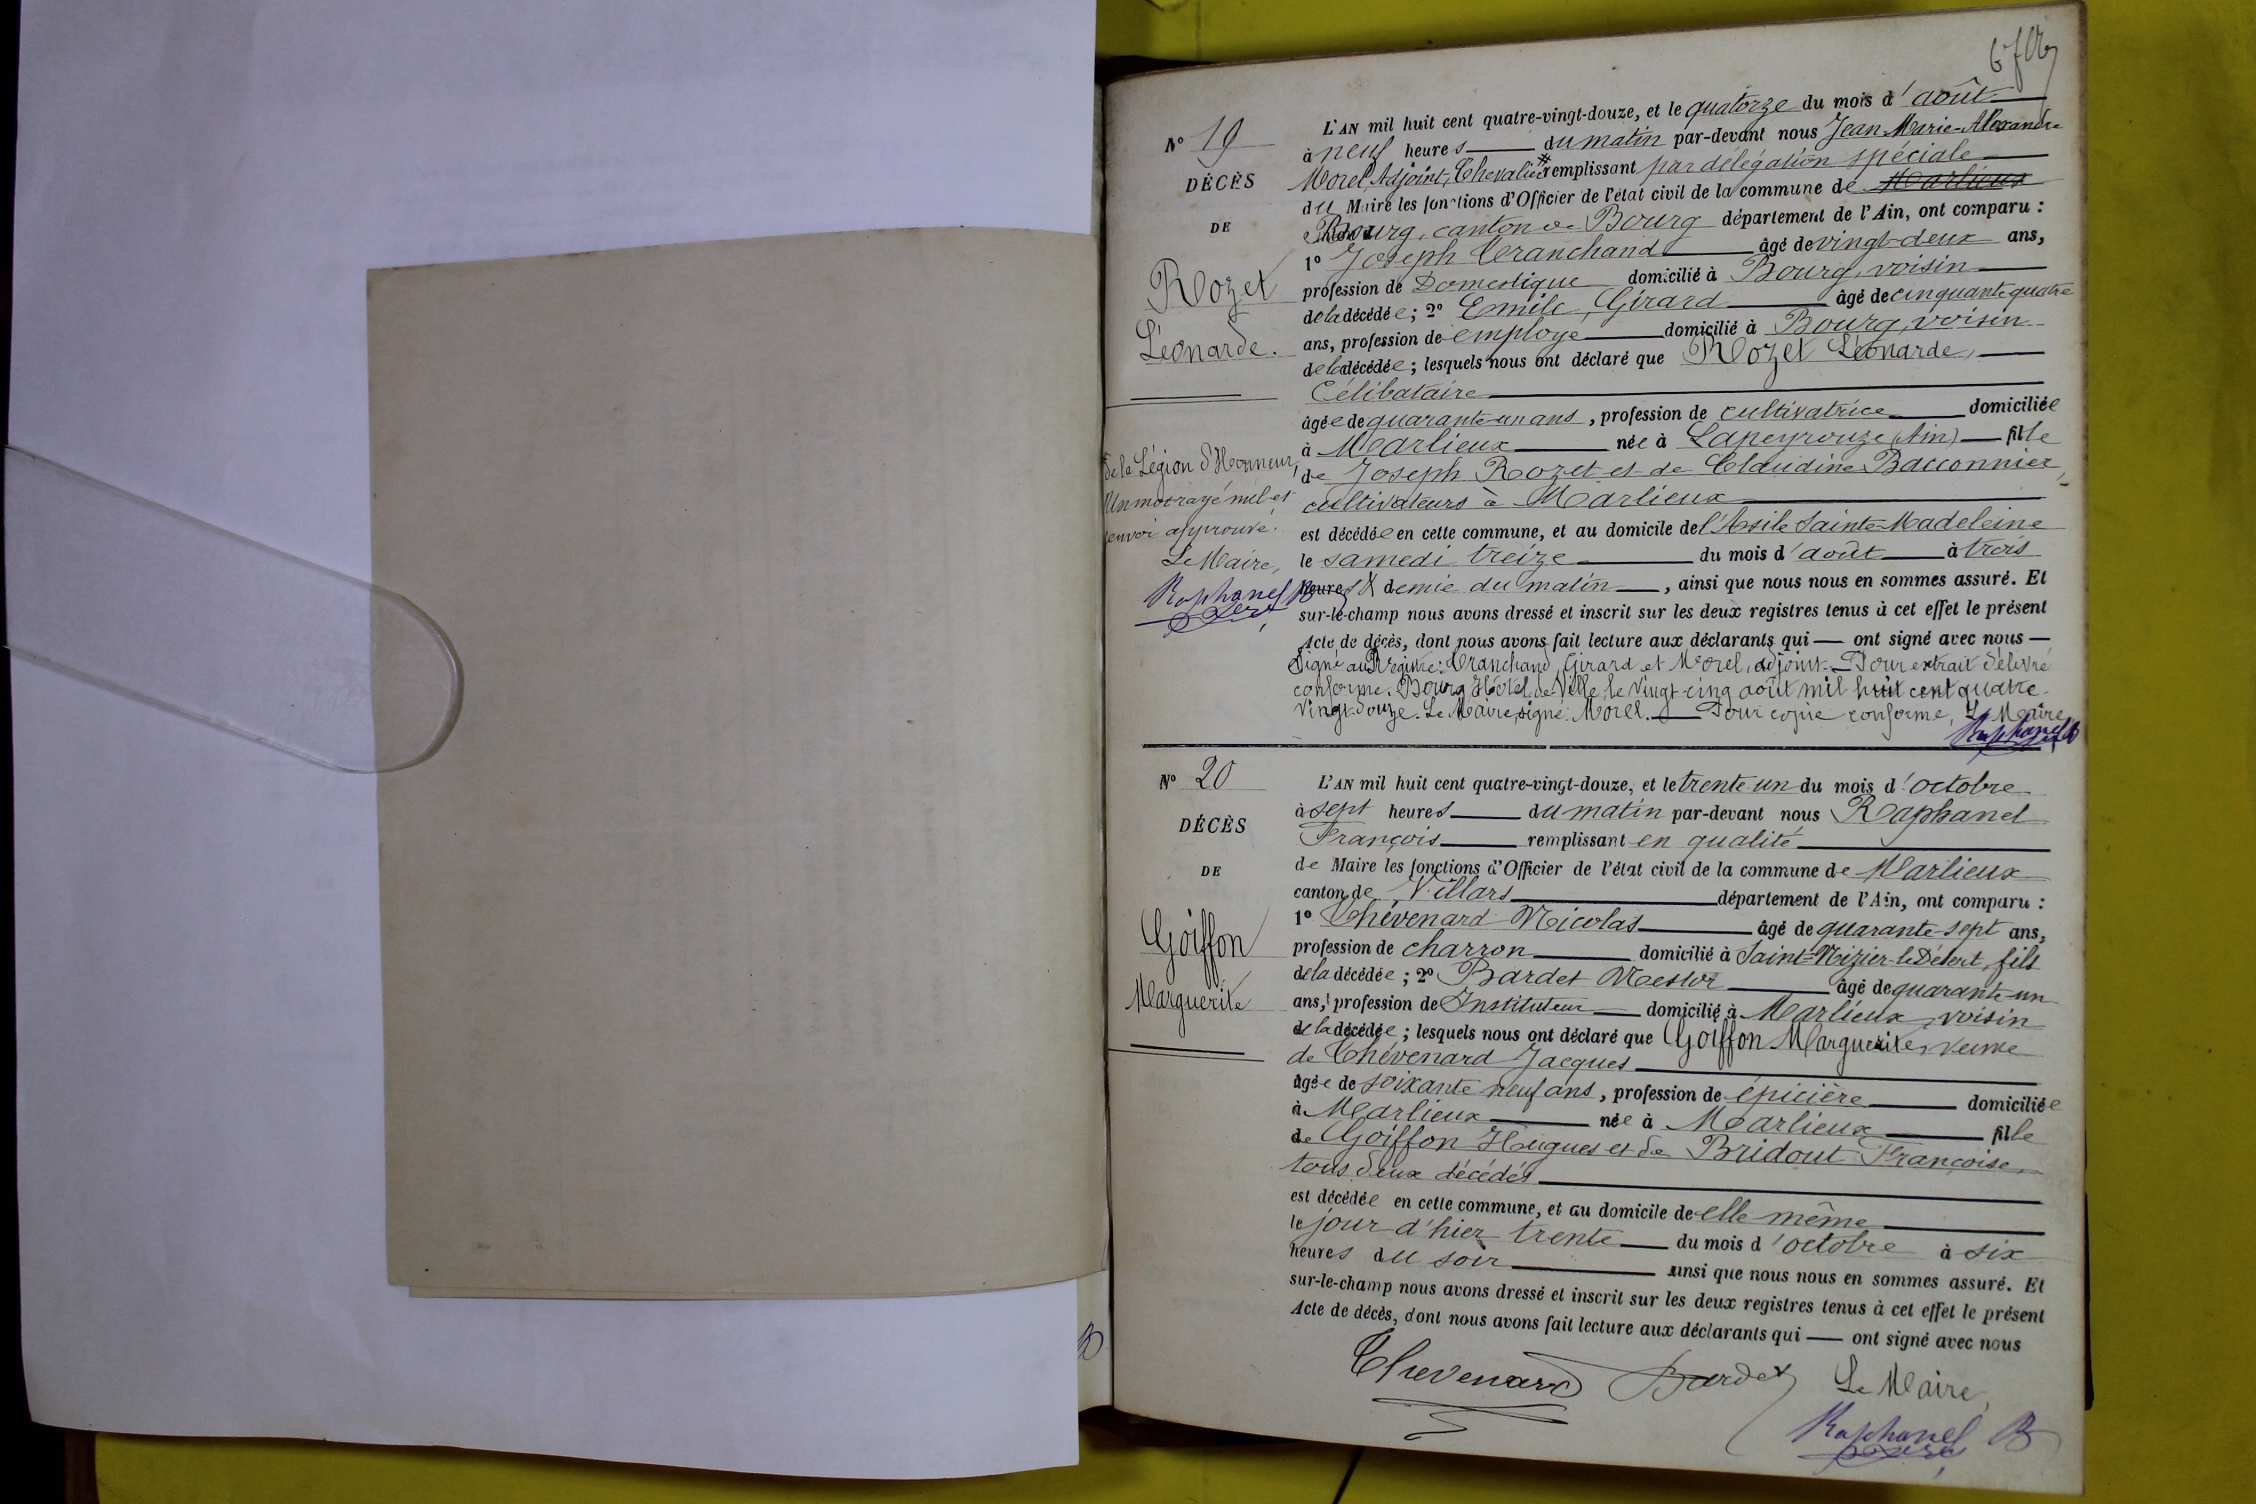 6 f
N° 19
DÉCÈS
DE
Rozet
Léonarde.
L'AN mil huit cent quatre-vingt-douze, et le quatorze du mois d'août
à neuf heures du matin par-devant nous Jean Marie-Alexandre
Morel, Adjoint, Chevalier # remplissant par délégation spéciale
du Maire les fonctions d'Officier de l'état civil de la commune de Marlieux
Bourg, canton de Bourg département de l'Ain, ont comparu :
1° Joseph Tranchand âgé de vingt-deux ans,
profession de Domestique domicilié à Bourg, voisin
de la décédée ; 2° Emile Girard âgé de cinquante quatre
ans, profession de employé domicilié à Bourg, voisin
de la décédée ; lesquels nous ont déclaré que Rozet Léonarde,
Célibataire
âgée de quarante-un ans, profession de cultivatrice domiciliée
à Marlieux née à Lapeyrouze (Ain) fille
de Joseph Rozet et de Claudine Bacconnier,
cultivateurs à Marlieux
est décédée en cette commune, et au domicile de l'Asile Sainte-Madeleine
le samedi treize du mois d'août à trois
heures & demie du matin, ainsi que nous nous en sommes assuré. Et
sur-le-champ nous avons dressé et inscrit sur les deux registres tenus à cet effet le présent
Acte de décès, dont nous avons fait lecture aux déclarants qui ont signé avec nous
Signé au Registre : Tranchand, Girard et Morel, adjoint. Pour extrait délivré
conforme. Bourg Hôtel de Ville, le vingt-cinq août mil huit cent quatre-
vingt-douze. Le Maire, signé : Morel. Pour copie conforme, Le Maire,
Raphanel
de la Légion d'Honneur,
Un mot rayé nul et
renvoi approuvé.
Le Maire,
Raphanel
N° 20
DÉCÈS
DE
Goiffon
Marguerite
L'AN mil huit cent quatre-vingt-douze, et le trente-un du mois d'octobre
à sept heures du matin par-devant nous Raphanel
François remplissant en qualité
de Maire les fonctions d'Officier de l'état civil de la commune de Marlieux
canton de Villars département de l'Ain, ont comparu :
1° Chévenard Nicolas âgé de quarante-sept ans,
profession de charron domicilié à Saint-Nizier-le-Désert, fils
de la décédée ; 2° Bardet Nestor âgé de quarante-un
ans, profession de Instituteur domicilié à Marlieux, voisin
de la décédée ; lesquels nous ont déclaré que Goiffon Marguerite, veuve
de Chévenard Jacques
âgée de soixante neuf ans, profession de épicière domiciliée
à Marlieux née à Marlieux fille
de Goiffon Hugues et de Bridout Françoise,
tous deux décédés
est décédée en cette commune, et au domicile de elle même
le jour d'hier trente du mois d'octobre à six
heures du soir ainsi que nous nous en sommes assuré. Et
sur-le-champ nous avons dressé et inscrit sur les deux registres tenus à cet effet le présent
Acte de décès, dont nous avons fait lecture aux déclarants qui ont signé avec nous
Chevenard Bardet Le Maire,
Raphanel